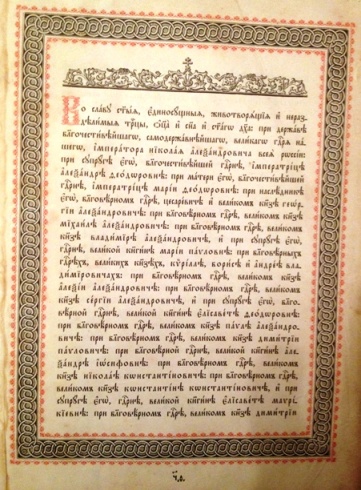 Во славу ст҃ы́ѧ, є҆диносꙋ́щныѧ, животворѧ́щїѧ и҆ нераз-
дѣли́мыѧ трⷪ҇цы, ѻ҆ц҃а̀ и҆ сн҃а и҆ ст҃а́гѡ дх҃а: при держа́вѣ
бл҃гочести́вѣйшагѡ, самодержа́внѣйшагѡ, вели́кагѡ гдⷭ҇рѧ на́-
шегѡ, і҆мпера́тора нїкола́а а҆леѯа́ндровича всеѧ̀ рѡссі́и:
при сꙋпрꙋ́гѣ є҆гѡ̀, бл҃гочести́вѣйшей гдⷭ҇рнѣ, і҆мператри́цѣ
а҆леѯа́ндрѣ ѳео́дѡровнѣ: при ма́тери є҆гѡ̀, бл҃гочести́вѣйшей
гдⷭ҇рнѣ, і҆мператри́цѣ марі́и ѳео́дѡровнѣ: при наслѣ́дникѣ
є҆гѡ̀, бл҃говѣ́рномъ гдⷭ҇рѣ, цесаре́вичѣ и҆ вели́комъ кн҃зѣ геѡ́р-
гїи а҆леѯа́ндровичѣ: при бл҃говѣ́рномъ гдⷭ҇рѣ, вели́комъ кн҃зѣ
мїхаи́лѣ а҆леѯа́ндровичѣ: при бл҃говѣ́рномъ гдⷭ҇рѣ, вели́комъ
кн҃зѣ влади́мїрѣ а҆леѯа́ндровичѣ, и҆ при сꙋпрꙋ́гѣ є҆гѡ̀,
гдⷭ҇рнѣ, вели́кой кнѧги́нѣ марі́и па́ѵловнѣ: при бл҃говѣ́рныхъ
гдⷭ҇рѣхъ, вели́кихъ кн҃зѣхъ, кѷрі́ллѣ, бори́сѣ и҆ а҆ндре́ѣ вла-
ди́мїровичахъ: при бл҃говѣ́рномъ гдⷭ҇рѣ, вели́комъ кн҃зѣ
а҆леѯі́и а҆леѯа́ндровичѣ: при бл҃говѣ́рномъ гдⷭ҇рѣ, вели́комъ
кн҃зѣ се́ргїи а҆леѯа́ндровичѣ, и҆ при сꙋпрꙋ́гѣ є҆гѡ̀, бл҃го-
вѣ́рной гдⷭ҇рнѣ, вели́кой кнѧги́нѣ є҆лїсаве́тѣ ѳео́дѡровнѣ:
при бл҃говѣ́рномъ гдⷭ҇рѣ, вели́комъ кн҃зѣ па́ѵлѣ а҆леѯа́ндро-
вичѣ: при бл҃говѣ́рномъ гдⷭ҇рѣ, вели́комъ кн҃зѣ дими́трїи
па́ѵловичѣ: при бл҃говѣ́рной гдⷭ҇рнѣ, вели́кой кнѧги́нѣ а҆ле-
ѯа́ндрѣ і҆ѡ́сифовнѣ: при бл҃говѣ́рномъ гдⷭ҇рѣ, вели́комъ
кн҃зѣ нїкола́ѣ кѡнстанті́новичѣ: при бл҃говѣ́рномъ гдⷭ҇рѣ,
вели́комъ кн҃зѣ кѡнстанті́нѣ кѡнстанті́новичѣ, и҆ при
сꙋпрꙋ́гѣ є҆гѡ̀, гдⷭ҇рнѣ, вели́кой кнѧги́нѣ є҆лїсаве́тѣ маѵрі́-
кїевнѣ: при бл҃говѣ́рномъ гдⷭ҇рѣ, вели́комъ кн҃зѣ дими́трїи